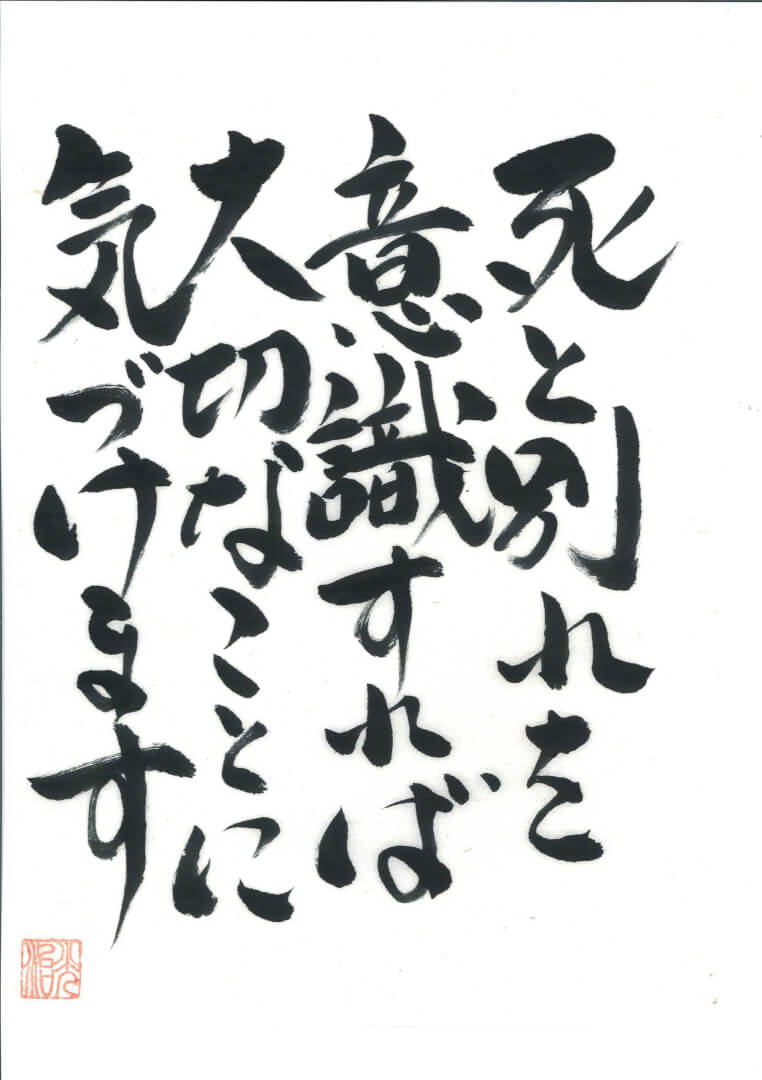 死と別れを
意識すれば
大切なことに
気づけます